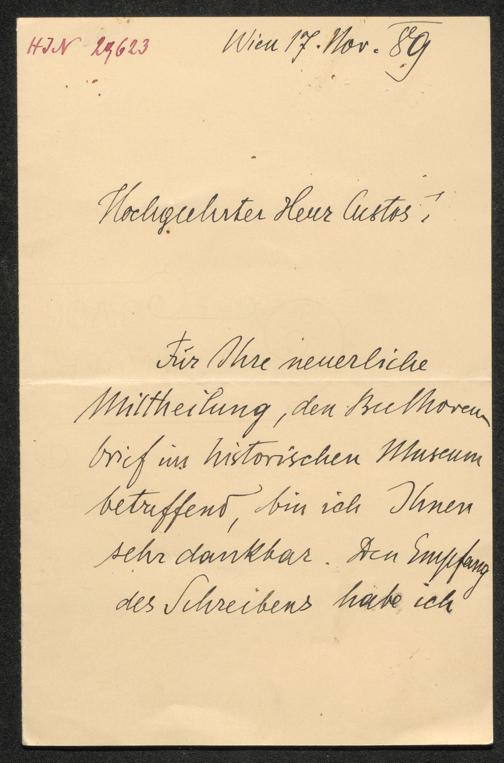 HIN 29623
Wien 17. Nov. 89
Hochgeehrter Herr Custos!
Für Ihre neuerliche
Mittheilung, den Beethoven-
brief im historischen Museum
betreffend, bin ich Ihnen
sehr dankbar. Den Empfang
des Schreibens habe ich